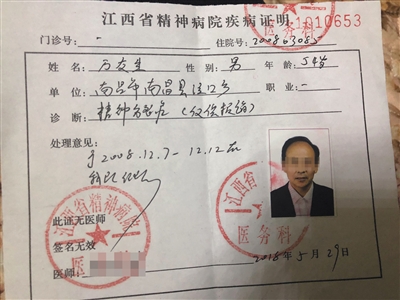 江西省精神病院疾病证明
1010653
门诊号： - 住院号：200803085
医务科
姓名：万友生 性别：男 年龄：54岁
单位：南昌市南昌县 职业：-
诊断：精神分裂症（仅供报销）
处理意见：
于2008.12.7—12.12在
我院住院
此证无医师
签名无效
医师：
江西省精神病院
江西省
医务科
2018年5月29日